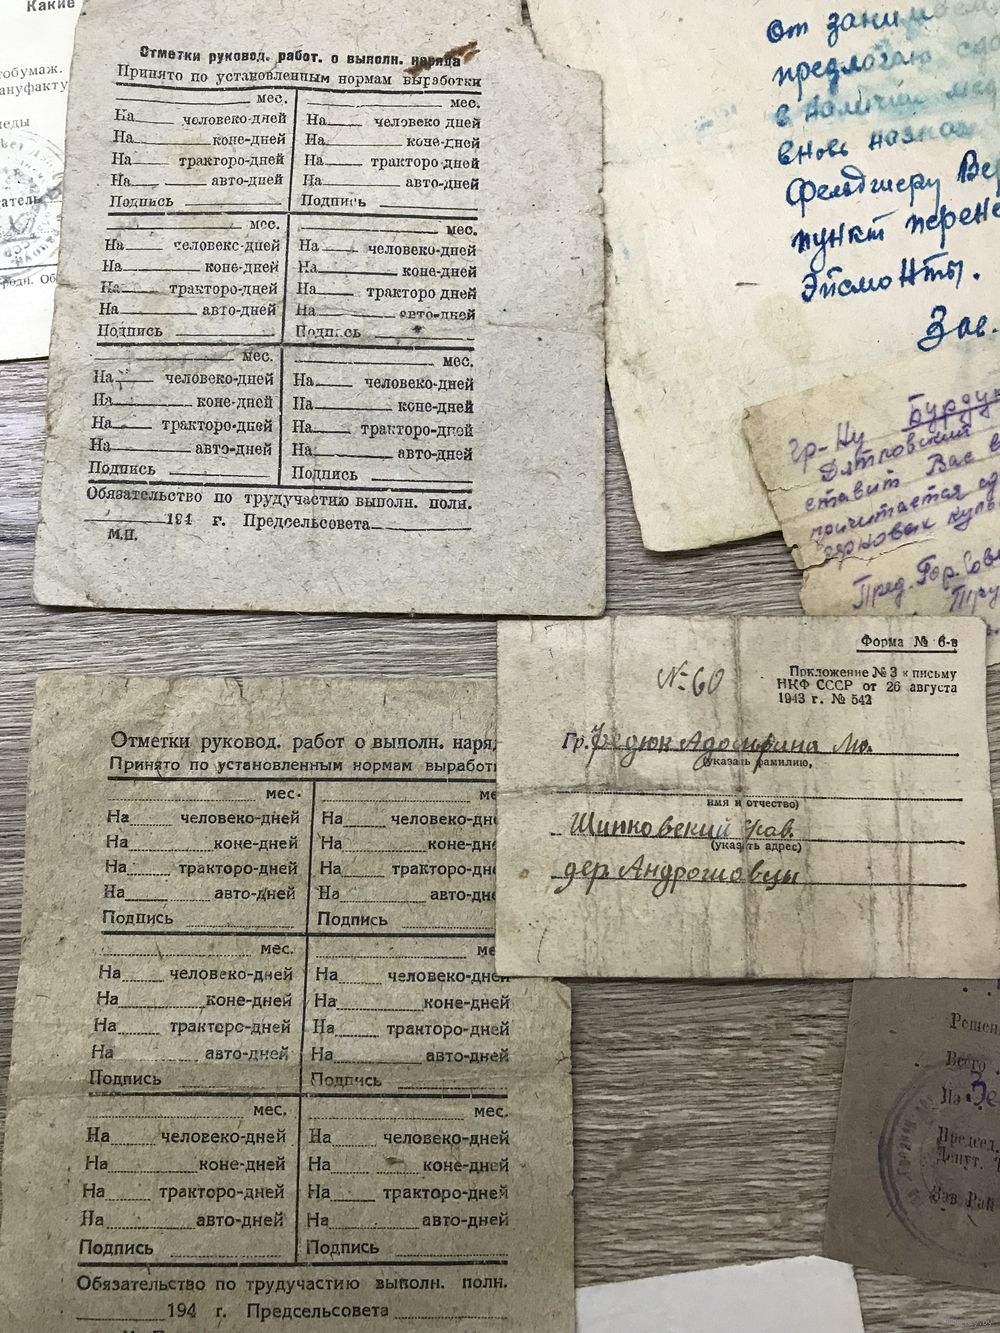 Какие
тобумаж.
ануфакту
Отметки руковод. работ. о выполн. наряда
Принято по установленным нормам выработки
мес. мес.
На человеко-дней На человеко дней
На коне-дней На коне-дней
На тракторо-дней На тракторо-дней
На авто-дней На авто-дней
Подпись Подпись
мес. мес.
На человеко-дней На человеко-дней
На коне-дней На коне-дней
На тракторо-дней На тракторо дней
На авто-дней На авто-дней
Подпись Подпись
мес. мес.
На человеко-дней На человеко-дней
На коне-дней На коне-дней
На тракторо-дней На тракторо-дней
На авто-дней На авто-дней
Подпись Подпись
Обязательство по трудучастию выполн. полн.
194 г. Предсельсовета
М.П.
От
предлагаю
в наличии мед
вновь назнач
Фельдшеру Вер
пункт перене
Эйсмонты.
Зав.
гр-ну Бурдун
Дятловский
ставит Вас в
причитается сд
зерновых куль
Пред. Гор. Сове
Форма № 6-в
Приложение № 3 к письму
НКФ СССР от 26 августа
1943 г. № 542
№ 60
Гр.
(указать фамилию,
имя и отчество)
Шипковский
(указать адрес)
дер. Андрошовцы
Отметки руковод. работ о выполн. наряд
Принято по установленным нормам выработ
мес. ме
На человеко-дней На человеко-дн
На коне-дней На коне-дн
На тракторо-дней На тракторо-дн
На авто-дней На авто-дн
Подпись Подпись
мес. ме
На человеко-дней На человеко-дней
На коне-дней На коне-дней
На тракторо-дней На тракторо-дней
На авто-дней На авто-дней
Подпись Подпись
мес. мес.
На человеко-дней На человеко-дней
На коне-дней На коне-дней
На тракторо-дней На тракторо-дней
На авто-дней На авто-дней
Подпись Подпись
Обязательство по трудучастию выполн. полн.
194 г. Предсельсовета
Решен
Всего
На
Председ.
Депут.
Зав. Рай